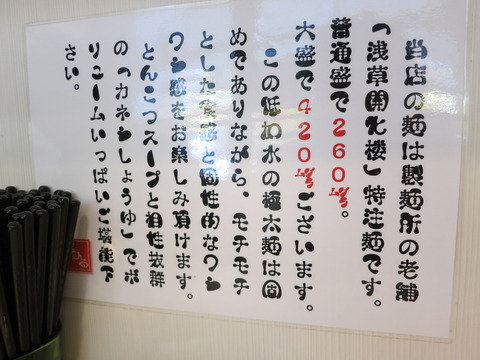 当店の麺は製麺所の老舗
「浅草開化楼」特注麺です。
普通盛で260㌘。
大盛で420㌘ございます。
この低加水の極太麺は固
めでありながら、モチモチ
とした食感と個性的なワシ
ワシ感をお楽しみ頂けます。
とんこつスープと相性抜群
の「カネシしょうゆ」でボ
リュームいっぱいご堪能下
さい。